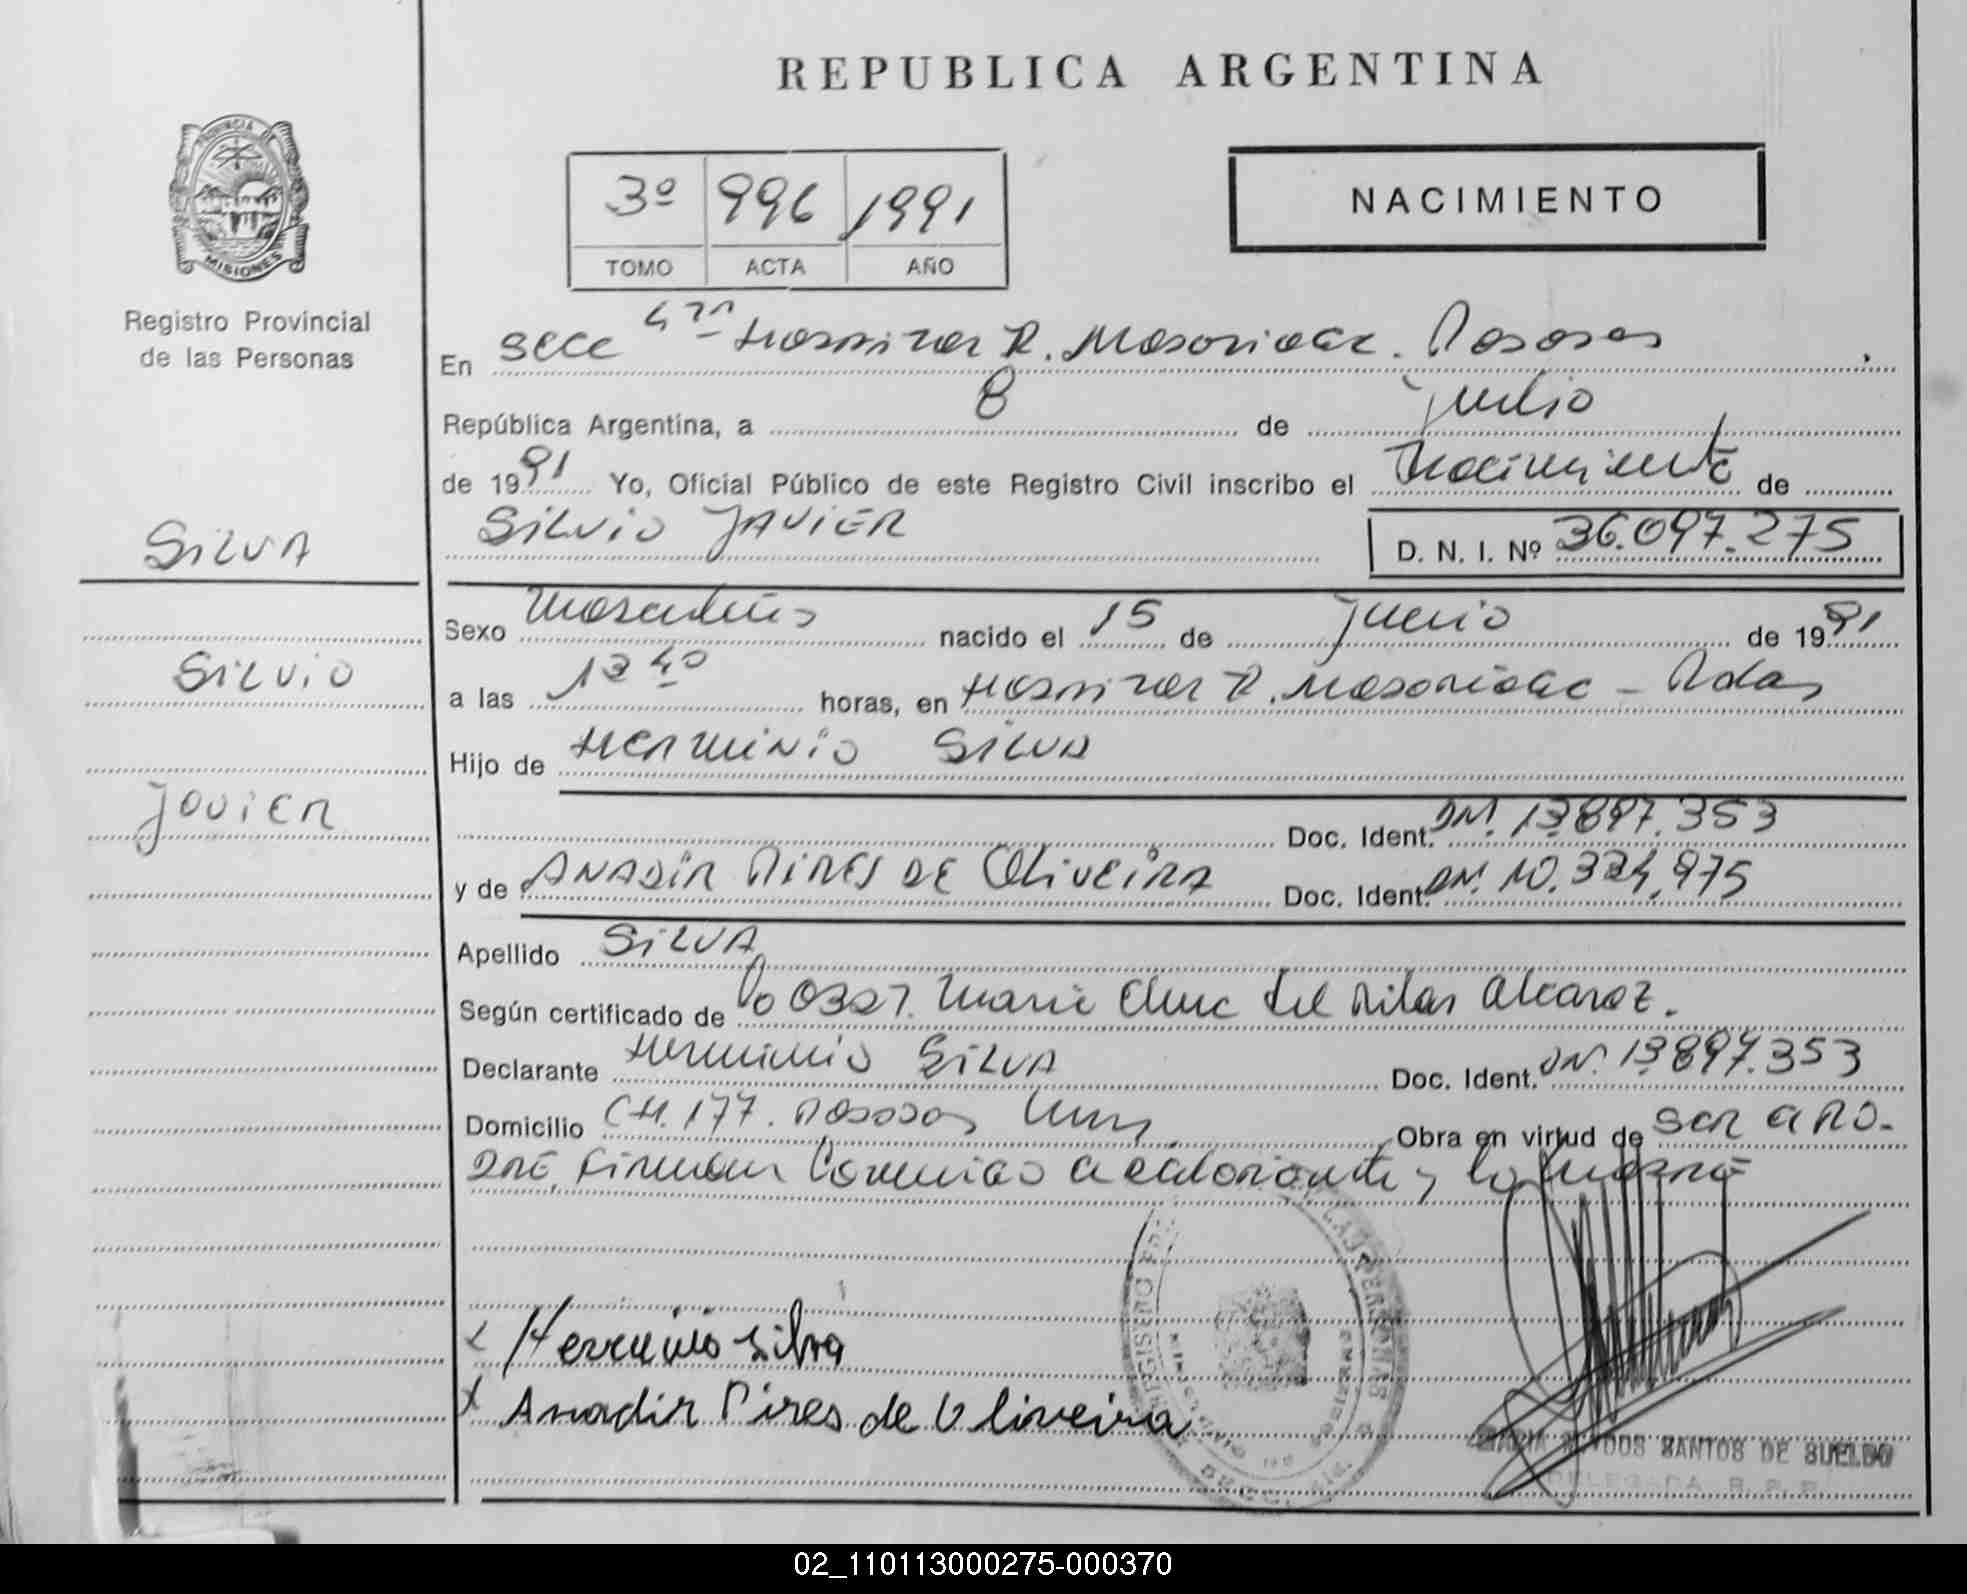 REPUBLICA ARGENTINA
PROVINCIA DE
MISIONES
Registro Provincial
de las Personas
3º 996 1991
TOMO ACTA AÑO
NACIMIENTO
En Secc 4ta Hospital R. Madariaga. Posadas
República Argentina, a 8 de julio
de 1991 Yo, Oficial Público de este Registro Civil inscribo el nacimiento de
SILVA
SILVIO JAVIER D. N. I. Nº 36.097.275
Sexo masculino nacido el 15 de junio de 1991
Silvio
a las 12 40 horas, en Hospital R. Madariaga - Pdas
Hijo de Herminio Silva
Javier
Doc. Ident. DNI. 13.897.353
y de ANADIR PIRES DE OLIVEIRA Doc. Ident. DNI. 10.324.975
Apellido SILVA
Según certificado de Maria del Pilar Alcaraz.
Declarante Herminio SILVA Doc. Ident. DNI. 13.897.353
Domicilio CH. 177. Posadas Obra en virtud de ser el PA-
DRE. Firman Conmigo el declarante y la madre
x Herminio Silva
x Anadir Pires de Oliveira
REGISTRO LAS PERSONAS
MARIA DOS SANTOS DE SUELDO
DELEGADA R. P. P.
02_110113000275-000370